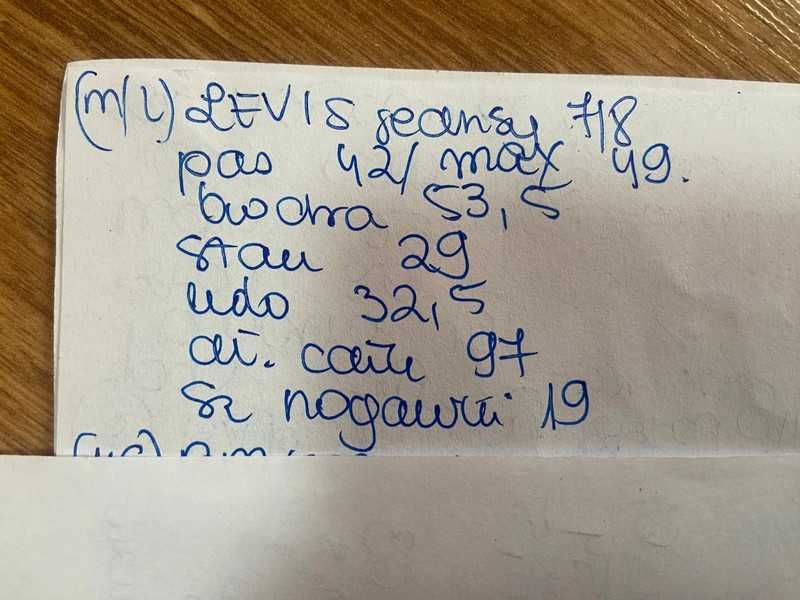 (M/L) LEVIS jeansy 7/8
pas 42/ max 49.
biodra 53,5
stan 29
udo 32,5
dł. całk 97
sz nogawki 19